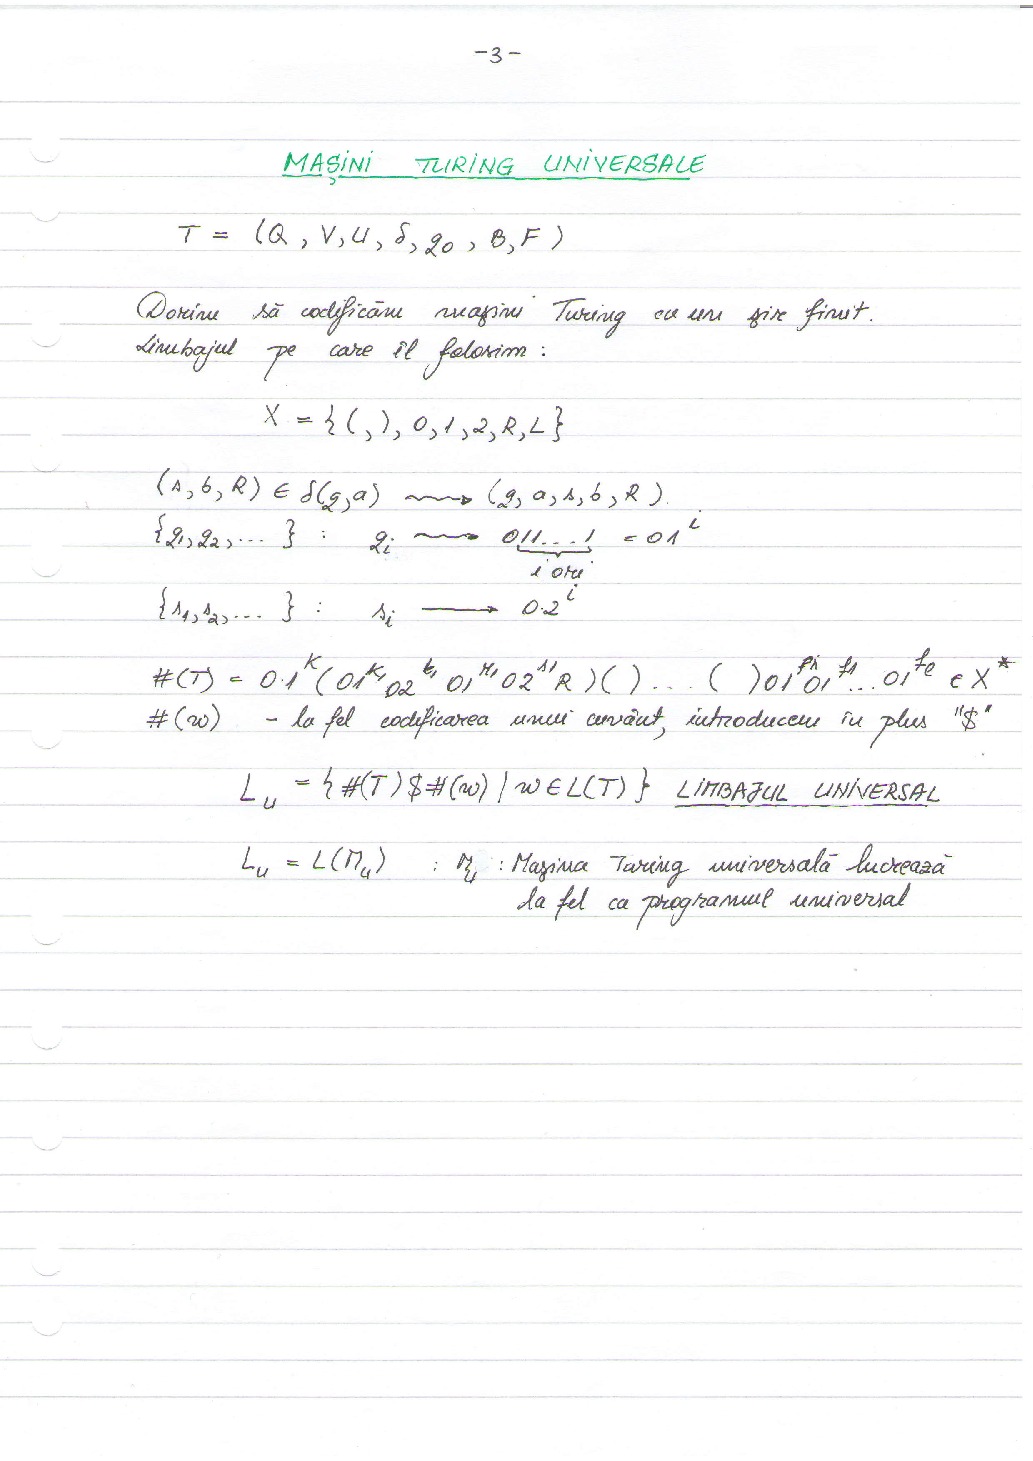 -3-
MAȘINI TURING UNIVERSALE
T = (Q, V, U, δ, q₀, B, F)
Dorim să codificăm mașini Turing cu un șir finit.
Limbajul pe care îl folosim :
X = {(, ), 0, 1, 2, R, L}
(s, b, R) ∈ δ(q, a) ⟿ (q, a, s, b, R).
{q₁, q₂, ... } : qᵢ ⟿ 011...1 = 01ⁱ
i ori
{s₁, s₂, ... } : sᵢ ⟶ 0·2ⁱ
#(T) = 0·1ᴷ (01ᴷ¹ 02ᵗ¹ 01ʳ¹ 02ˢ¹ R)( )... ( ) 01 01ᶠ¹...01ᶠᵉ ∈ X*
#(w) - la fel codificarea unui cuvânt, introducem în plus "$"
Lᵤ = {#(T)$#(w) | w ∈ L(T)} LIMBAJUL UNIVERSAL
Lᵤ = L(Mᵤ) : Mᵤ : Mașina Turing universală lucrează
la fel ca programul universal